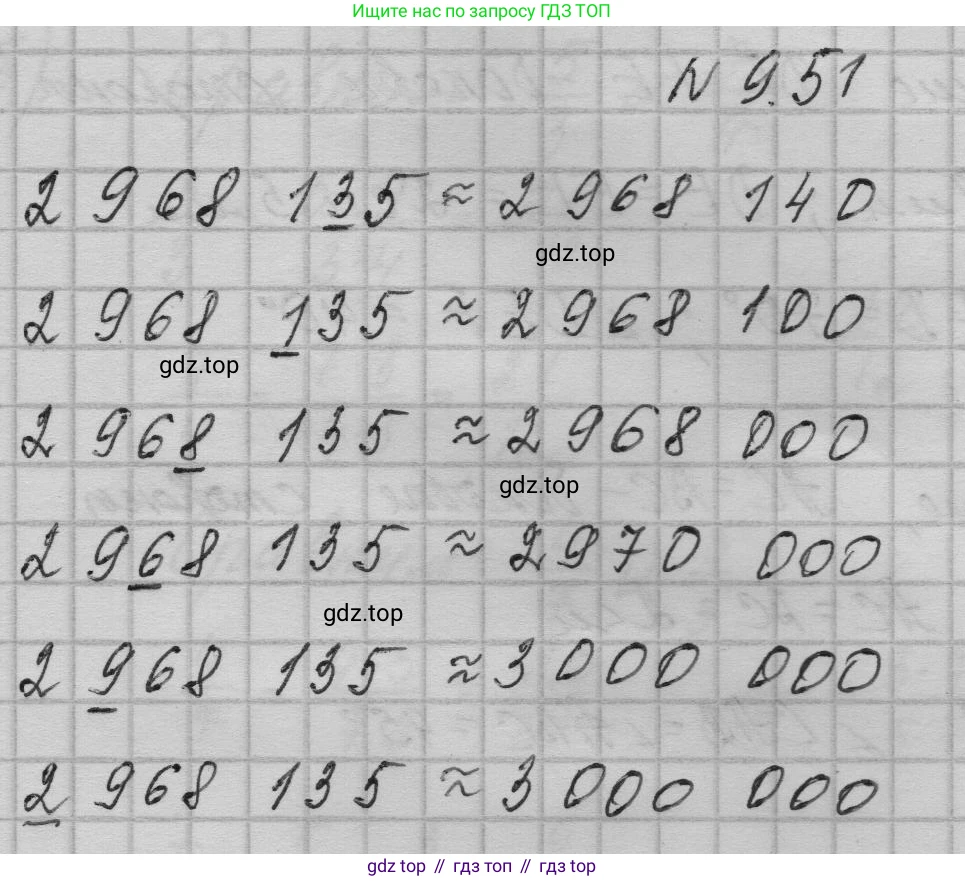 Ищите нас по запросу ГДЗ ТОП
N 951
2 968 135 ≈ 2 968 140
gdz.top
2 968 135 ≈ 2 968 100
gdz.top
2 968 135 ≈ 2 968 000
gdz.top
2 968 135 ≈ 2 970 000
gdz.top
2 968 135 ≈ 3 000 000
2 968 135 ≈ 3 000 000
gdz top // гдз топ // гдз top